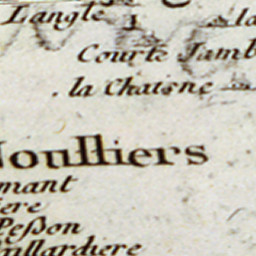 Langle
la
Courte Jamb
la Chatsne
Noulliers
mant
iere
Peßon
aillardiere